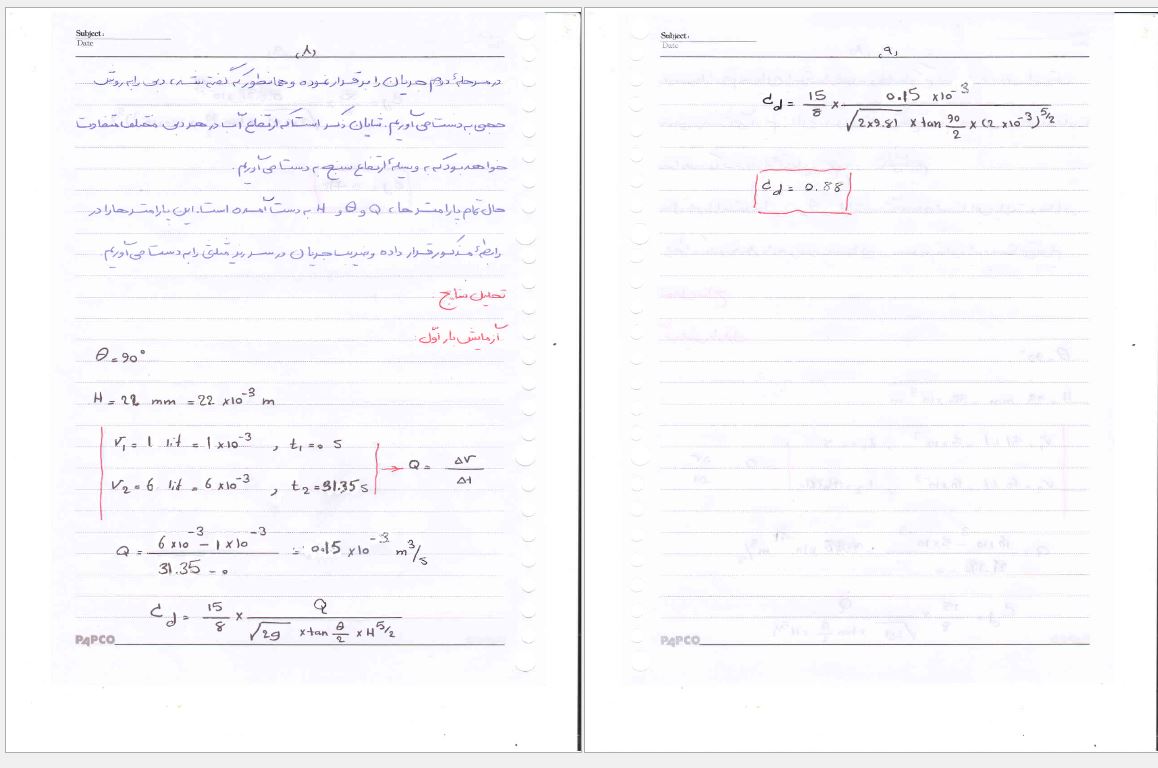 Subject:
Date
(۸)
در مرحلهٔ دوم جریان را برقرار نموده و همانطور که گفته شد، دبی را به روش
حجمی به دست می‌آوریم. شایان ذکر است که ارتفاع آب در هر دبی مختلف متفاوت
خواهد بود که به وسیلهٔ ارتفاع سنج به دست می‌آوریم.
حال تمام پارامترها، Q و θ و H به دست آمده است. این پارامترها را در
رابطهٔ مذکور قرار داده و ضریب جریان در سرریز مثلثی را به دست می‌آوریم.
تحلیل نتایج
آزمایش بار اوّل:
θ = 90°
H = 22 mm = 22 ×10⁻³ m
V₁ = 1 lit = 1 ×10⁻³ , t₁ = 0 s
V₂ = 6 lit = 6 ×10⁻³ , t₂ = 31.35 s → Q = ΔV / Δt
Q = (6×10⁻³ - 1×10⁻³) / (31.35 - 0) = 0.15 ×10⁻³ m³/s
C_d = 15/8 × Q / (√2g × tan θ/2 × H^5/2)
PAPCO
Subject:
Date
(۹)
C_d = 15/8 × 0.15 ×10⁻³ / (√2×9.81 × tan 90/2 × (2 ×10⁻³)^5/2)
C_d = 0.88
PAPCO